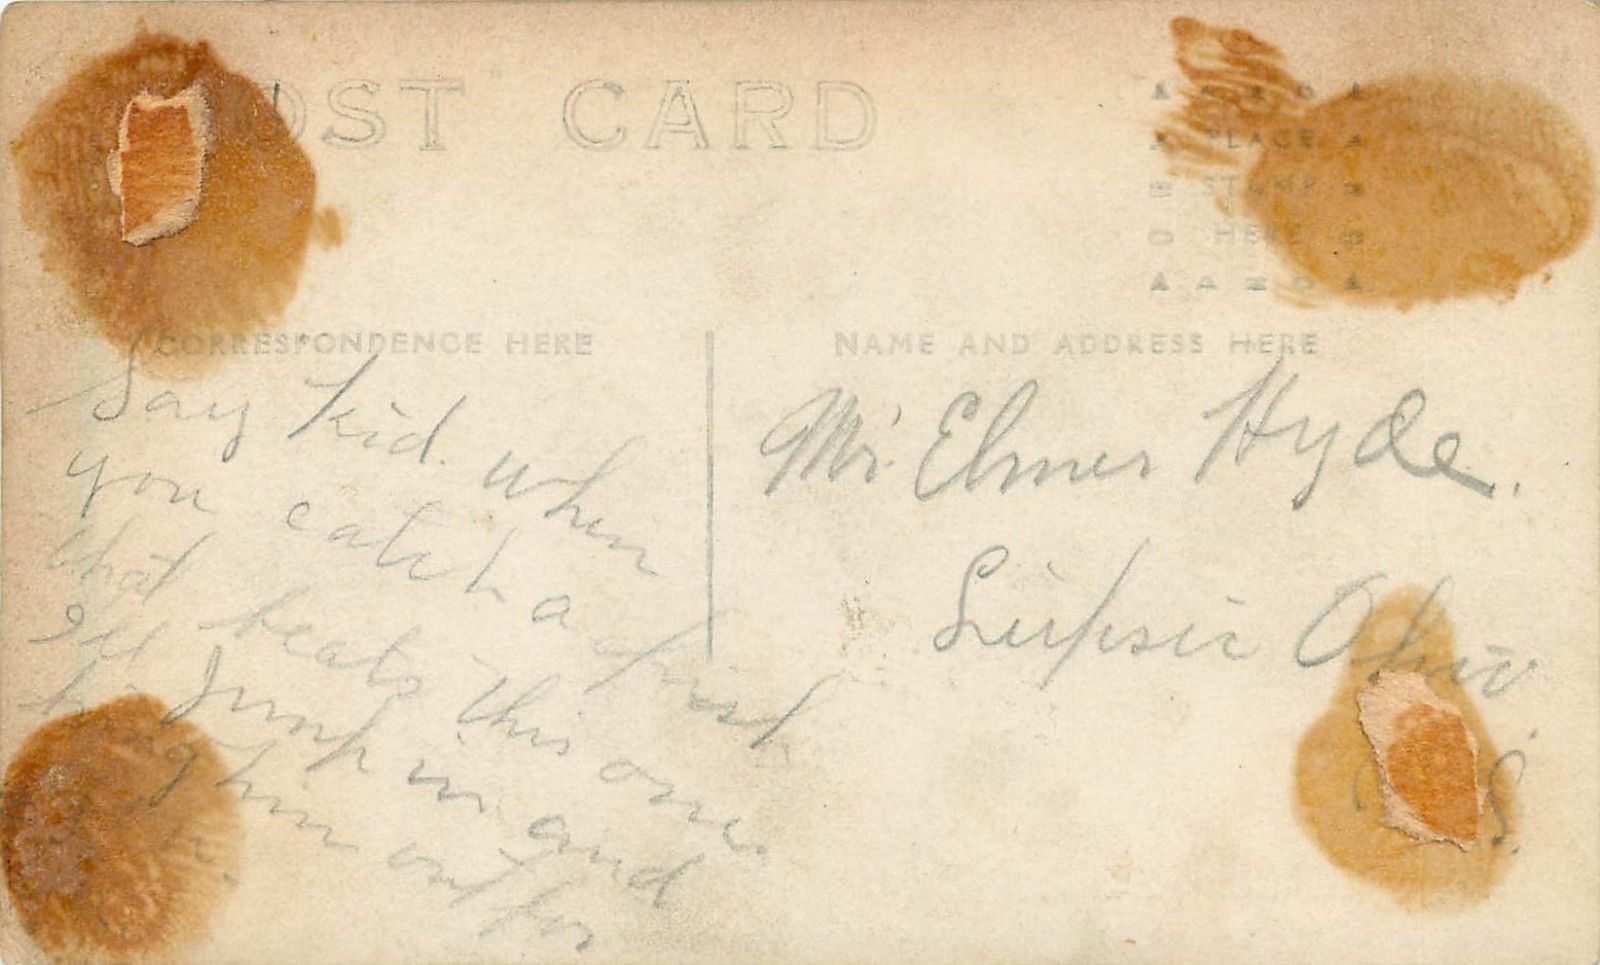 POST CARD
PLACE
STAMP
HERE
CORRESPONDENCE HERE
NAME AND ADDRESS HERE
Say Kid. when
you catch a fish
that beats this one
Ill Jump in and
bring him out for
Mr. Elmer Hyde.
Leipsic Ohio.
S.